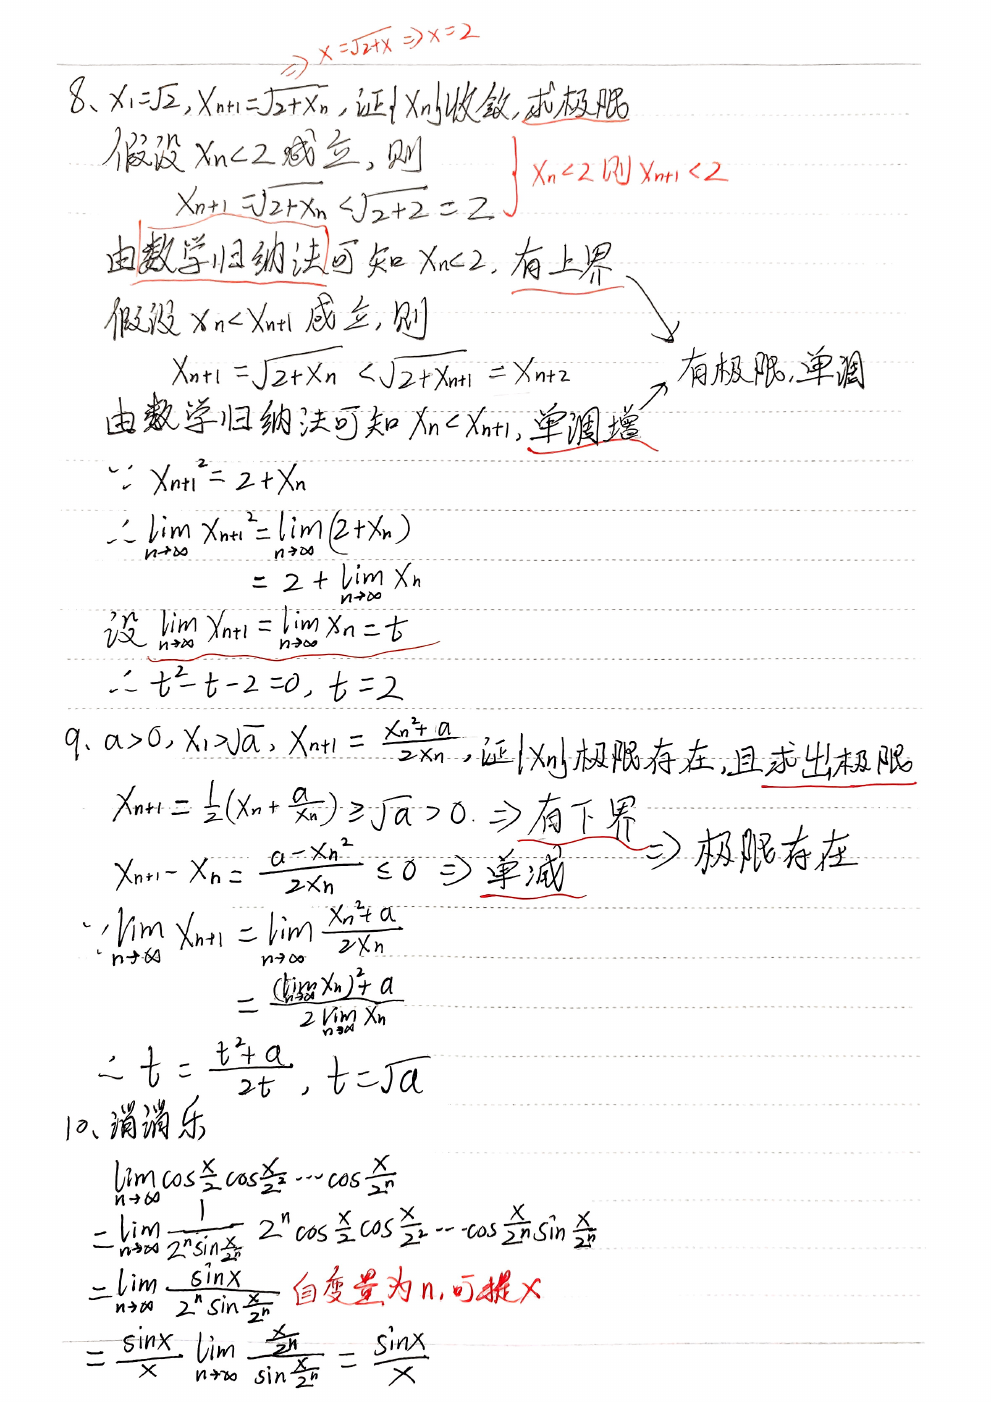 ⇒ x=√(2+x) ⇒ x=2
8、x₁=√2, xₙ₊₁=√(2+xₙ), 证{xₙ}收敛,求极限
假设 xₙ<2 成立, 则
xₙ₊₁=√(2+xₙ) <√(2+2) = 2
} xₙ<2 则 xₙ₊₁<2
由数学归纳法可知 xₙ<2, 有上界
假设 xₙ<xₙ₊₁ 成立, 则
xₙ₊₁ =√(2+xₙ) <√(2+xₙ₊₁) = xₙ₊₂
有极限,单调
由数学归纳法可知 xₙ<xₙ₊₁, 单调增
∵ xₙ₊₁² = 2+xₙ
∴ lim n→∞ xₙ₊₁² = lim n→∞ (2+xₙ)
= 2 + lim n→∞ xₙ
设 lim n→∞ xₙ₊₁ = lim n→∞ xₙ = t
∴ t²-t-2=0, t=2
9、a>0, x₁>√a, xₙ₊₁ = (xₙ²+a)/(2xₙ), 证{xₙ}极限存在,且求出极限
xₙ₊₁ = 1/2(xₙ + a/xₙ) ≥ √a > 0. ⇒ 有下界
xₙ₊₁ - xₙ = (a-xₙ²)/(2xₙ) ≤ 0 ⇒ 单减
⇒ 极限存在
∵ lim n→∞ xₙ₊₁ = lim n→∞ (xₙ²+a)/(2xₙ)
= ((lim n→∞ xₙ)²+a)/(2 lim n→∞ xₙ)
∴ t = (t²+a)/(2t), t=√a
10、消消乐
lim n→∞ cos x/2 cos x/2² ··· cos x/2ⁿ
= lim n→∞ 1/(2ⁿ sin x/2ⁿ) 2ⁿ cos x/2 cos x/2² ··· cos x/2ⁿ sin x/2ⁿ
= lim n→∞ sinx/(2ⁿ sin x/2ⁿ) 自变量为n,可提x
= sinx/x lim n→∞ (x/2ⁿ)/(sin x/2ⁿ) = sinx/x